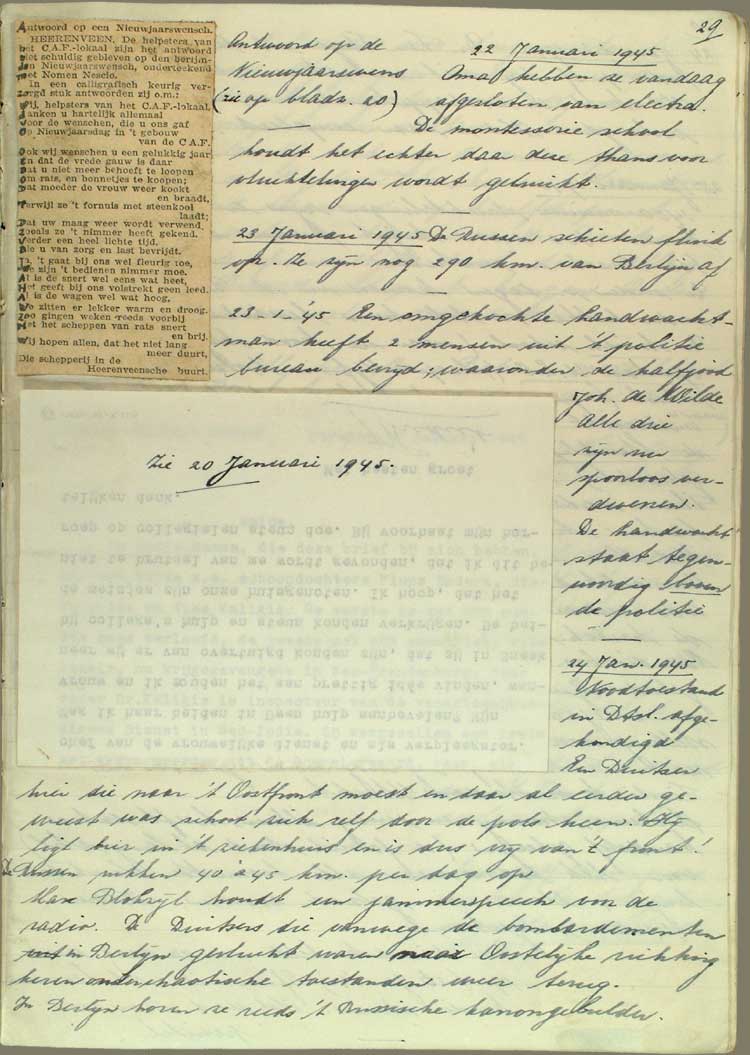 29
Antwoord op een Nieuwjaarswensch.
HEERENVEEN. De helpsters van
het C.A.F.-lokaal zijn het antwoord
niet schuldig gebleven op den berijm-
den Nieuwjaarswensch, onderteekend
met Nomen Nescio.
In een calligrafisch keurig ver-
zorgd stuk antwoorden zij o.m.:
Wij, helpsters van het C.A.F.-lokaal,
danken u hartelijk allemaal
Voor de wenschen, die u ons gaf
Op Nieuwjaarsdag in 't gebouw
van de C.A.F.
Ook wij wenschen u een gelukkig jaar
En dat de vrede gauw is daar
Dat u niet meer behoeft te loopen
Om rats, en bonnetjes te koopen;
Dat moeder de vrouw weer kookt
en braadt,
Terwijl ze 't fornuis met steenkool
laadt;
Dat uw maag weer wordt verwend,
Zooals ze 't nimmer heeft gekend.
Verder een heel lichte tijd,
Die u van zorg en last bevrijdt.
Ja, 't gaat bij ons wel fleurig toe,
We zijn 't bedienen nimmer moe.
Al is de snert wel eens wat heet,
Het geeft bij ons volstrekt geen leed.
Al is de wagen wel wat hoog,
We zitten er lekker warm en droog.
Zoo gingen weken reeds voorbij
Met het scheppen van rats snert
en brij.
Wij hopen allen, dat het niet lang
meer duurt,
Die schepperij in de
Heerenveensche buurt.
Antwoord op de
Nieuwjaarswens
(zie op bladz. 20)
22 Januari 1945
Oma hebben ze vandaag
afgesloten van electra.
De montessorie school
houdt het echter daar deze thans voor
vluchtelingen wordt gebruikt.
23 Januari 1945 De Russen schieten flink
op. Ze zijn nog 290 km. van Berlijn af
23-1-'45 Een omgekochte landwacht-
man heeft 2 mensen uit 't politie
bureau bevrijd; waaronder de halfjood
Joh. de Wilde
Alle drie
zijn nu
spoorloos ver-
dwenen.
De landwacht
staat tegen-
woordig boven
de politie
Zie 20 Januari 1945.
24 Jan. 1945
Noodtoestand
in Dtsl. afge-
kondigd
Een Duitser
hier die naar 't Oostfront moest en daar al eerder ge-
weest was schoot zich zelf door de pols heen. Hij
ligt hier in 't ziekenhuis en is dus vrij van 't front!
De Russen rukken 40 à 45 km. per dag op
Max Blokzijl houdt een jammerspeech voor de
radio. De Duitsers die vanwege de bombardementen
in Berlijn gevlucht waren naar Oostelijke richting
keren onder chaotische toestanden weer terug.
In Berlijn horen ze reeds 't Russische kanongebulder.